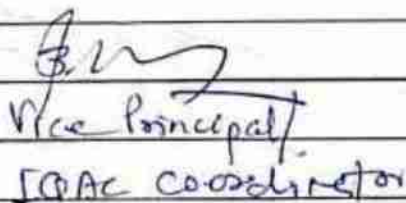 Vice Principal/
IQAC Co-ordinator